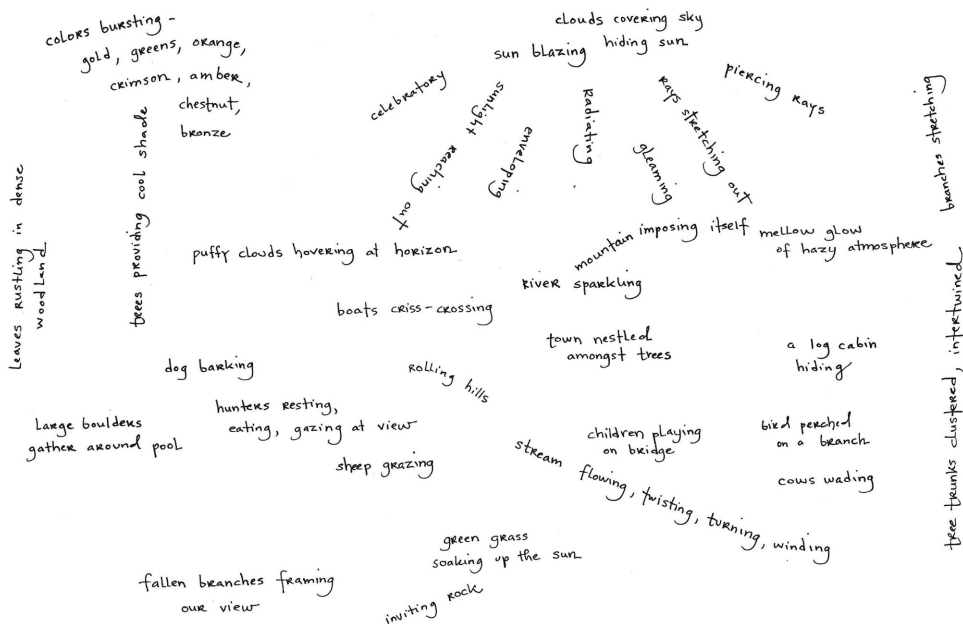 colors bursting -
gold, greens, orange,
crimson, amber,
chestnut,
bronze
clouds covering sky
hiding sun
sun blazing
celebratory
sunlight reaching out
enveloping
Radiating
gleaming
Rays stretching out
piercing rays
branches stretching
leaves rustling in dense
woodland
trees providing cool shade
puffy clouds hovering at horizon
mountain imposing itself
mellow glow
of hazy atmosphere
River sparkling
boats criss-crossing
town nestled
amongst trees
a log cabin
hiding
dog barking
Rolling hills
large boulders
gather around pool
hunters resting,
eating, gazing at view
sheep grazing
children playing
on bridge
bird perched
on a branch
cows wading
stream flowing, twisting, turning, winding
tree trunks clustered, intertwined
green grass
soaking up the sun
fallen branches framing
our view
inviting rock